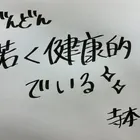 どんどん
若く健康的
でいる
寺本